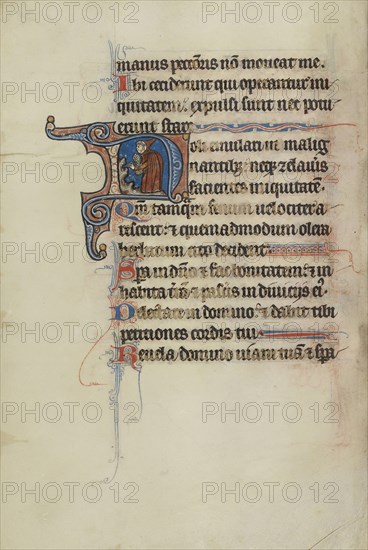 manus peccoris non moveat me.
Ibi ceciderunt qui operantur ini
quitatem. expulsi sunt nec potu
erunt stare
Noli emulari in malig
nantibus neque zelaveris
facientes iniquitatem.
Qm tamqm fenum velociter a
rescent: et quemadmodum olera
herbarum cito decident.
Spera in dno et fac bonitatem: et in
habita tram et pasceris in divitiis eius.
Delectare in domino: et dabit tibi
petitiones cordis tui.
Revela domino viam tuam et spera
PHOTO 12